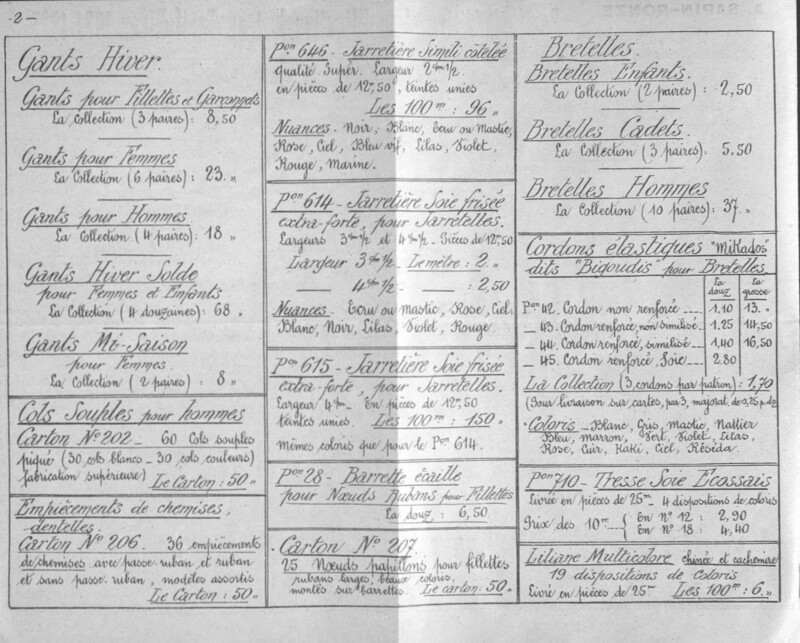 - 2 -
Gants Hiver.
Gants pour Fillettes et Garçonnets
La Collection (3 paires) : 8,50
Gants pour Femmes
La Collection (6 paires) : 23. "
Gants pour Hommes.
La Collection (4 paires) : 18 "
Gants Hiver Solde
pour Femmes et Enfants
La Collection (4 douzaines) : 68 "
Gants Mi-Saison
pour Femmes.
La Collection (2 paires) : 8 "
Cols Souples pour hommes
Carton N° 202 _ 60 Cols souples
piqué (30 cols blancs _ 30 cols couleurs)
fabrication supérieure) Le Carton : 50 "
Empiècements de chemises,
dentelles.
Carton N° 206. 36 empiècements
de chemises avec passe ruban et ruban
et sans passe ruban, modèles assortis
Le Carton : 50 "
Pon 646 - Jarretière Simili côtelée
qualité Supér. Largeur 2 c/m 1/2.
en pièces de 12m,50, teintes unies
Les 100m : 96 "
Nuances. Noir, Blanc, Ecru ou Mastic,
Rose, Ciel, Bleu vif, Lilas, Violet,
Rouge, Marine.
Pon 614 - Jarretière Soie frisée
extra-forte, pour Jarretelles.
Largeurs 3 c/m 1/2 et 4 c/m 1/2 - Pièces de 12m,50
Largeur 3 c/m 1/2 _ Le mètre : 2. "
___ 4 c/m 1/2 _ ___ : 2,50
Nuances _ Ecru ou Mastic, Rose, Ciel
Blanc, Noir, Lilas, Violet, Rouge.
Pon 615 - Jarretière Soie frisée
extra-forte, pour Jarretelles.
Largeur 4 c/m _ En pièces de 12m,50
teintes unies. Les 100m : 150 "
Mêmes coloris que pour le Pon 614.
Pon 28 - Barrette écaille
pour Nœuds Rubans pour Fillettes
La douz : 6,50
Carton N° 207.
25 Nœuds papillons pour fillettes
rubans larges, beaux coloris,
montés sur barrettes. Le carton : 50 "
Bretelles.
Bretelles Enfants.
La Collection (2 paires) : 2,50
Bretelles Cadets.
La Collection (3 paires) : 5,50
Bretelles Hommes
La Collection (10 paires) : 37. "
Cordons élastiques "Mikados"
dits "Bigoudis" pour Bretelles
La douz La grosse
Pon 42. Cordon non renforcé _ 1.10 13. "
_ 43. Cordon renforcé, non similisé _ 1.25 14,50
_ 44. Cordon renforcé, similisé _ 1,40 16,50
_ 45. Cordon renforcé, Soie _ 2.80
La Collection (3 cordons par patron) : 1,70
(Pour livraison sur cartes, par 3, majorat. de 0,25 p. dz
Coloris _ Blanc, Gris, Mastic, Nattier
Bleu, Marron, Vert, Violet, Lilas,
Rose, Cuir, Kaki, Ciel, Réséda.
Pon 710 - Tresse Soie Ecossais
Livrée en pièces de 25m _ 4 dispositions de coloris
Prix des 10m { En N° 12 : 2,90
En N° 18 : 4,40
Liliane Multicolore chinée et cachemire
19 dispositions de coloris
Livré en pièces de 25m Les 100m : 6 "